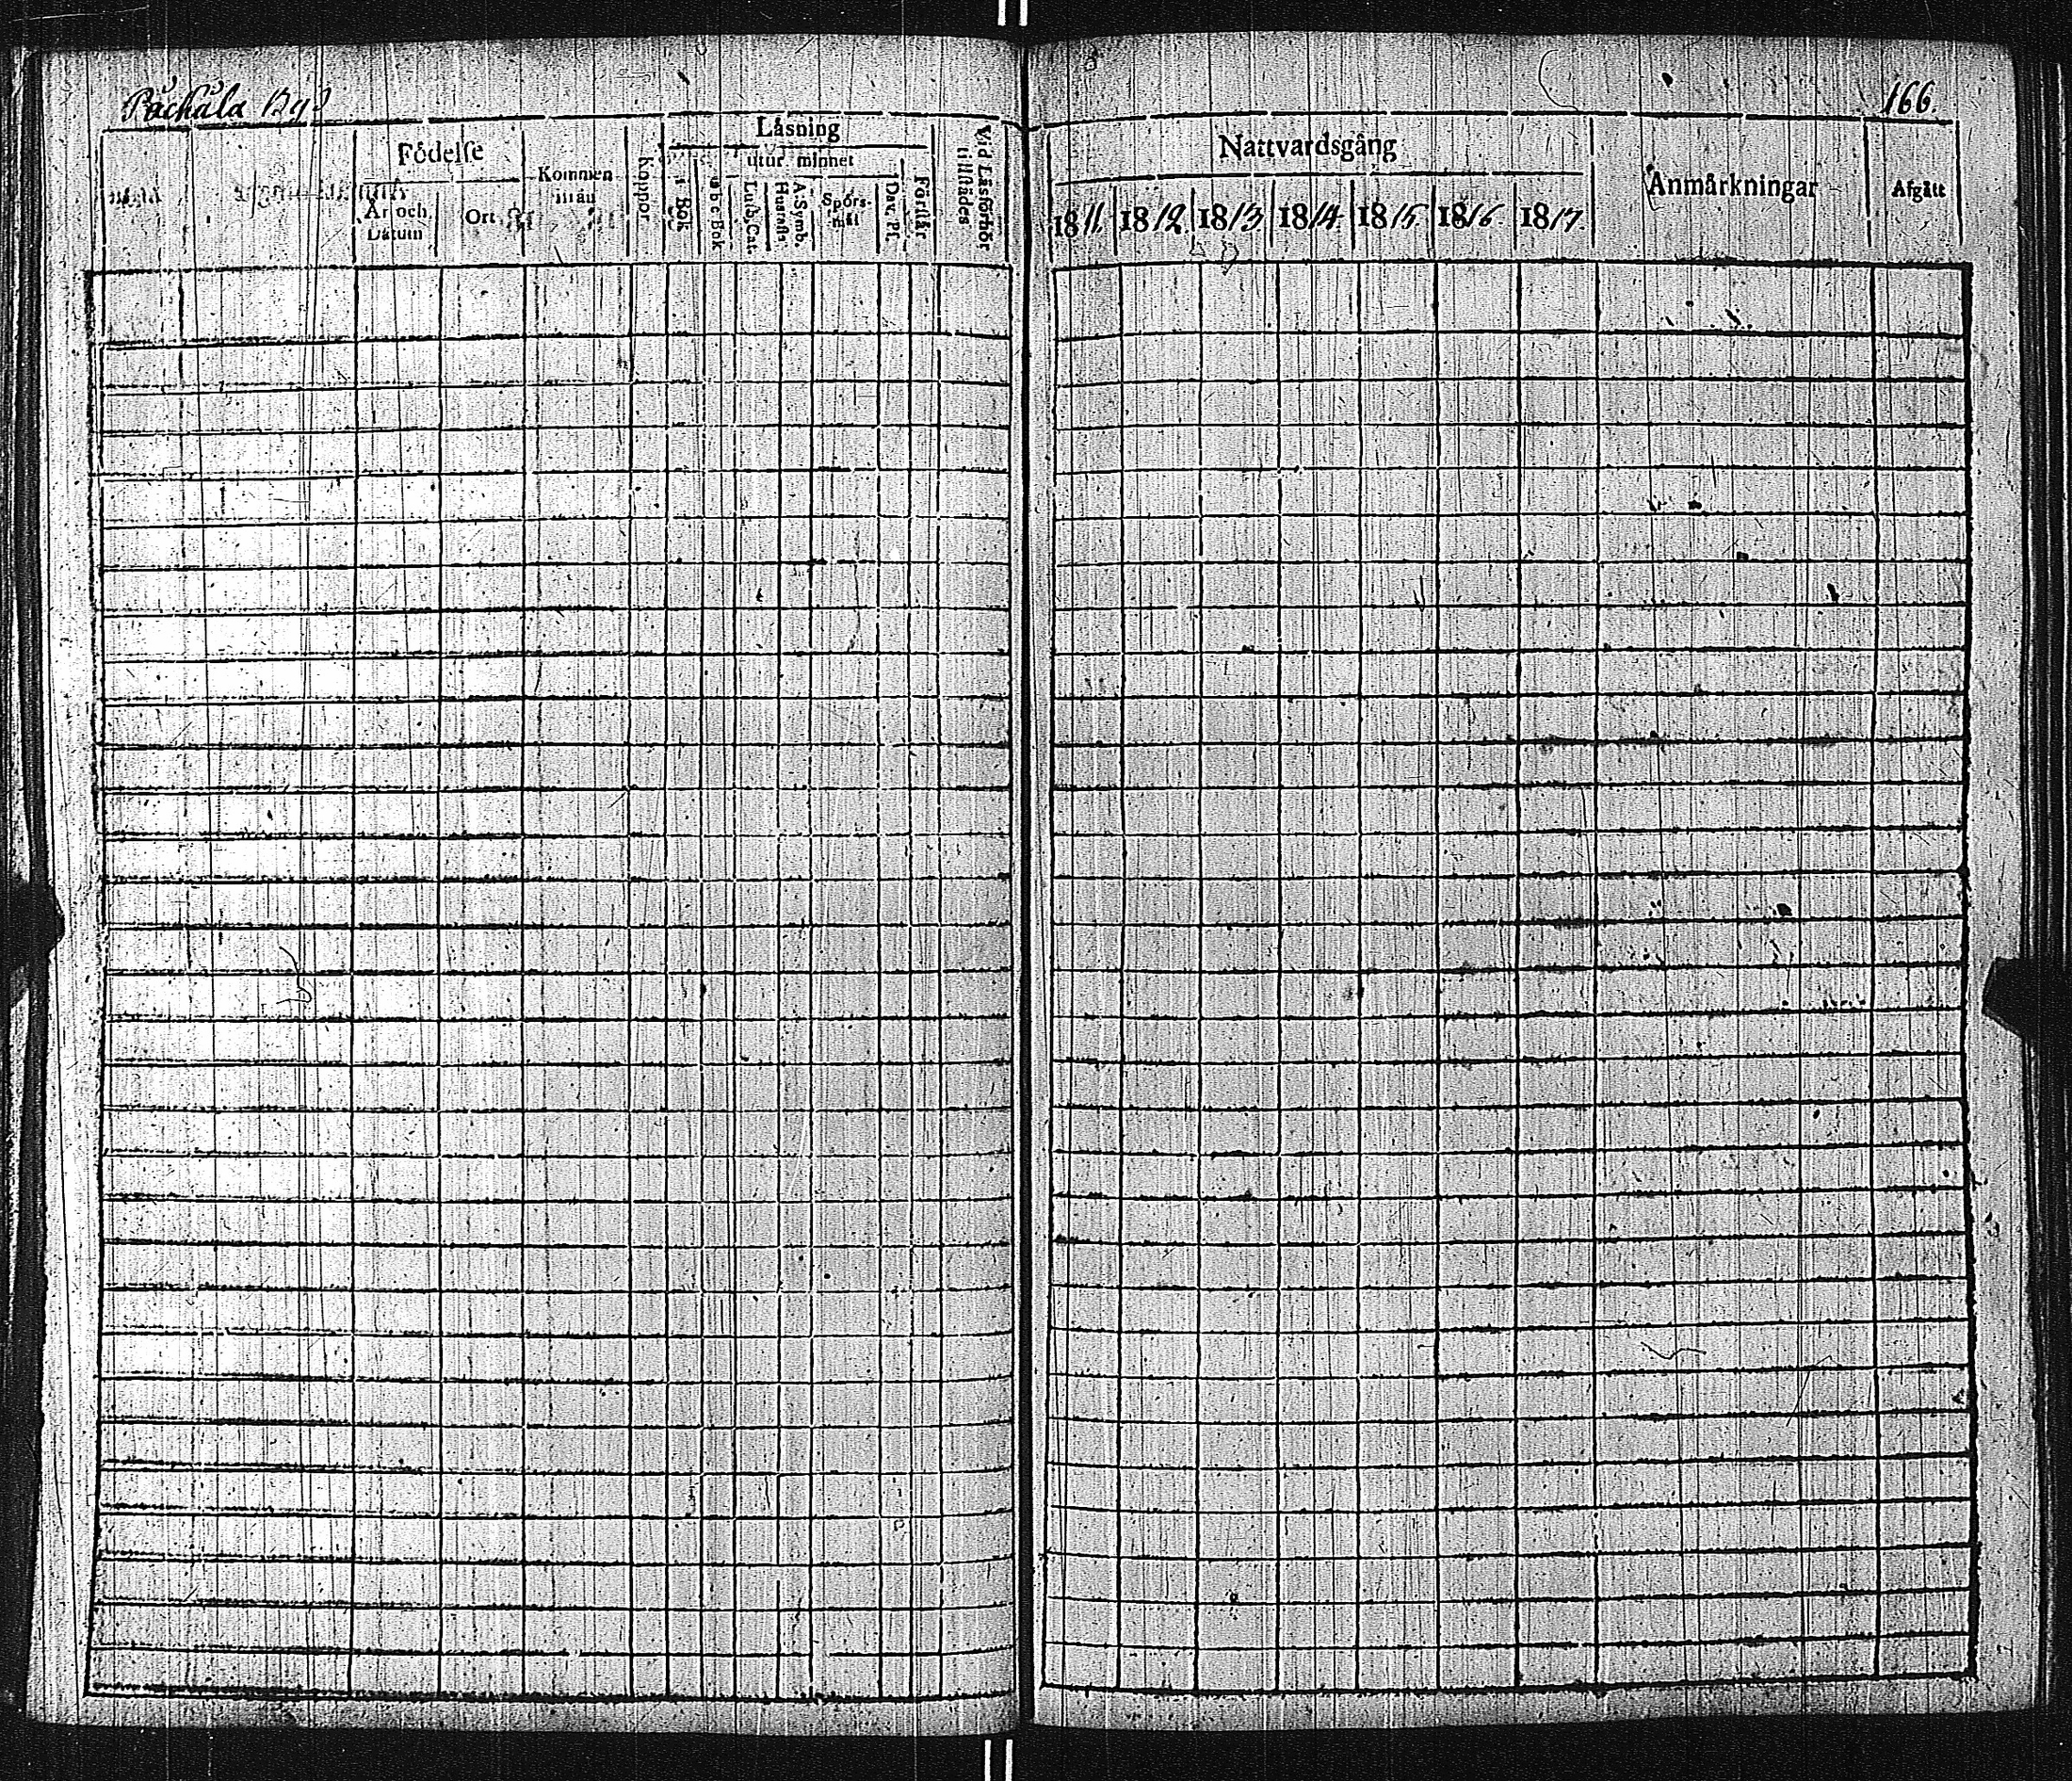 Påckála By
166.
Födelse
År och Datum
Ort
Kommen ifrån
Koppor
Läsning
utur minnet
i Bok
a b c Bok
Luth. Cat.
Husrafl.
A. Symb.
Spörs-mål
Dav. Ps.
Förstår
Vid Läsförhör tillstädes
Nattvardsgång
1811.
1812.
1813.
1814.
1815.
1816.
1817.
Anmärkningar
Afgått